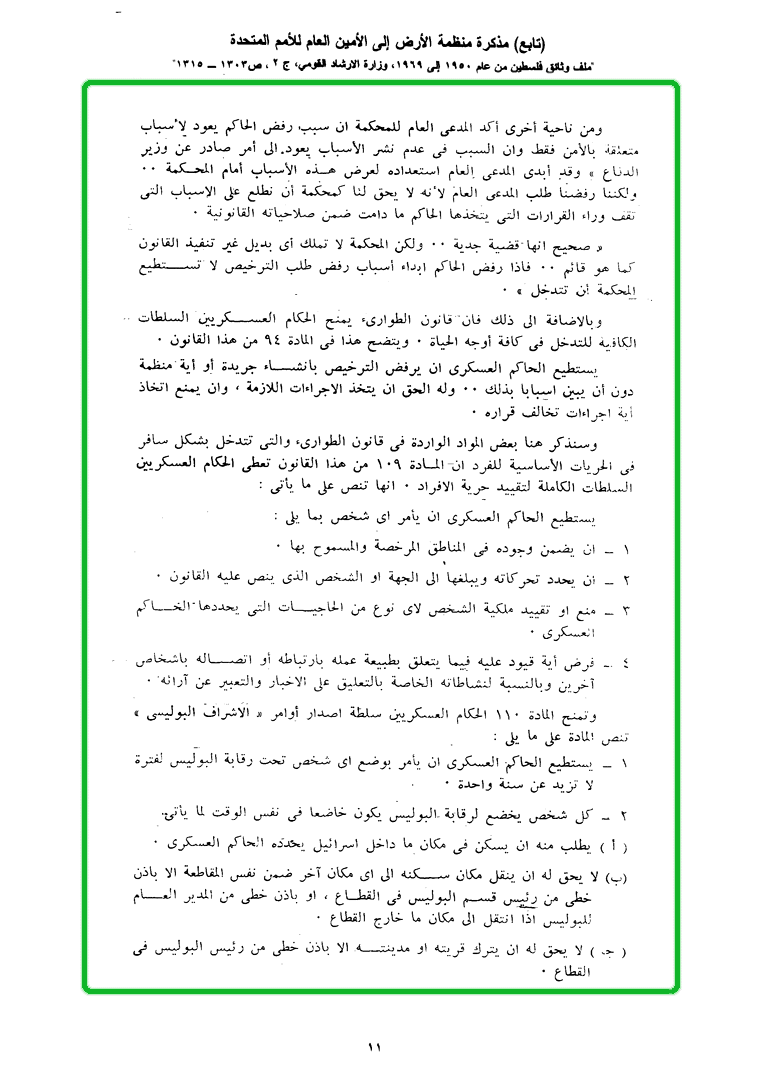 (تابع) مذكرة منظمة الأرض إلى الأمين العام للأمم المتحدة
"ملف وثائق فلسطين من عام ١٩٥٠ إلى ١٩٦٩، وزارة الارشاد القومي، ج ٢ ، ص١٣٠٣ ــ ١٣١٥"
ومن ناحية أخرى أكد المدعى العام للمحكمة ان سبب رفض الحاكم يعود لأسباب
متعلقة بالأمن فقط وان السبب فى عدم نشر الأسباب يعود الى أمر صادر عن وزير
الدفاع » وقد أبدى المدعى العام استعداده لعرض هذه الأسباب أمام المحكمة ٠٠
ولكننا رفضنا طلب المدعى العام لأنه لا يحق لنا كمحكمة أن نطلع على الاسباب التى
تقف وراء القرارات التى يتخذها الحاكم ما دامت ضمن صلاحياته القانونية ٠
« صحيح انها قضية جدية ٠٠ ولكن المحكمة لا تملك أى بديل غير تنفيذ القانون
كما هو قائم ٠٠ فاذا رفض الحاكم ابداء أسباب رفض طلب الترخيص لا تستطيع
المحكمة أن تتدخل » ٠
وبالاضافة الى ذلك فان قانون الطوارىء يمنح الحكام العسكريين السلطات
الكافية للتدخل فى كافة أوجه الحياة ٠ ويتضح هذا فى المادة ٩٤ من هذا القانون ٠
يستطيع الحاكم العسكرى ان يرفض الترخيص بانشاء جريدة أو أية منظمة
دون أن يبين اسبابا بذلك ٠٠ وله الحق ان يتخذ الاجراءات اللازمة ، وان يمنع اتخاذ
أية اجراءات تخالف قراره ٠
وسنذكر هنا بعض المواد الواردة فى قانون الطوارىء والتى تتدخل بشكل سافر
فى الحريات الأساسية للفرد ان المادة ١٠٩ من هذا القانون تعطى الحكام العسكريين
السلطات الكاملة لتقييد حرية الافراد ٠ انها تنص على ما يأتى :
يستطيع الحاكم العسكرى ان يأمر اى شخص بما يلى :
١ ــ ان يضمن وجوده فى المناطق المرخصة والمسموح بها ٠
٢ ــ ان يحدد تحركاته ويبلغها الى الجهة او الشخص الذى ينص عليه القانون ٠
٣ ــ منع او تقييد ملكية الشخص لاى نوع من الحاجيات التى يحددها الحاكم
العسكرى ٠
٤ ــ فرض أية قيود عليه فيما يتعلق بطبيعة عمله بارتباطه أو اتصاله باشخاص
آخرين وبالنسبة لنشاطاته الخاصة بالتعليق على الاخبار والتعبير عن آرائه ٠
وتمنح المادة ١١٠ الحكام العسكريين سلطة اصدار أوامر « الاشراف البوليسى »
تنص المادة على ما يلى :
١ ــ يستطيع الحاكم العسكرى ان يأمر بوضع اى شخص تحت رقابة البوليس لفترة
لا تزيد عن سنة واحدة ٠
٢ ــ كل شخص يخضع لرقابة البوليس يكون خاضعا فى نفس الوقت لما يأتى
( أ ) يطلب منه ان يسكن فى مكان ما داخل اسرائيل يحدده الحاكم العسكرى ٠
(ب) لا يحق له ان ينقل مكان سكنه الى اى مكان آخر ضمن نفس المقاطعة الا باذن
خطى من رئيس قسم البوليس فى القطاع ، او باذن خطى من المدير العام
للبوليس اذا انتقل الى مكان ما خارج القطاع ٠
( جـ ) لا يحق له ان يترك قريته او مدينته الا باذن خطى من رئيس البوليس فى
القطاع ٠
١١